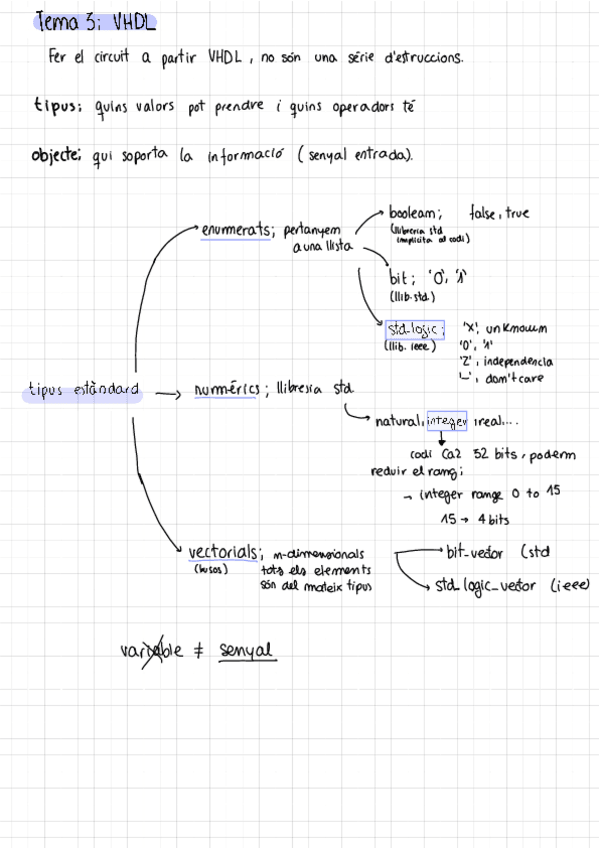 Tema 3: VHDL
Fer el circuit a partir VHDL, no són una sèrie d'estruccions.
tipus: quins valors pot prendre i quins operadors té
objecte: qui soporta la informació (senyal entrada).
enumerats; pertanyem
a una llista
boolean; false, true
(llibreria std
implícita al codi)
bit; '0', '1'
(llib. std.)
std_logic;
(llib. ieee)
'X', unknown
'0', '1'
'Z', independencia
'-', don't care
tipus estàndard
numèrics; llibreria std
natural, integer, real...
codi Ca2 52 bits, poderm
reduir el rang;
→ integer range 0 to 15
15 → 4 bits
vectorials; n-dimensionals
(busos) tots els elements
són del mateix tipus
bit-vector (std
std_logic_vector (ieee)
variable ≠ senyal